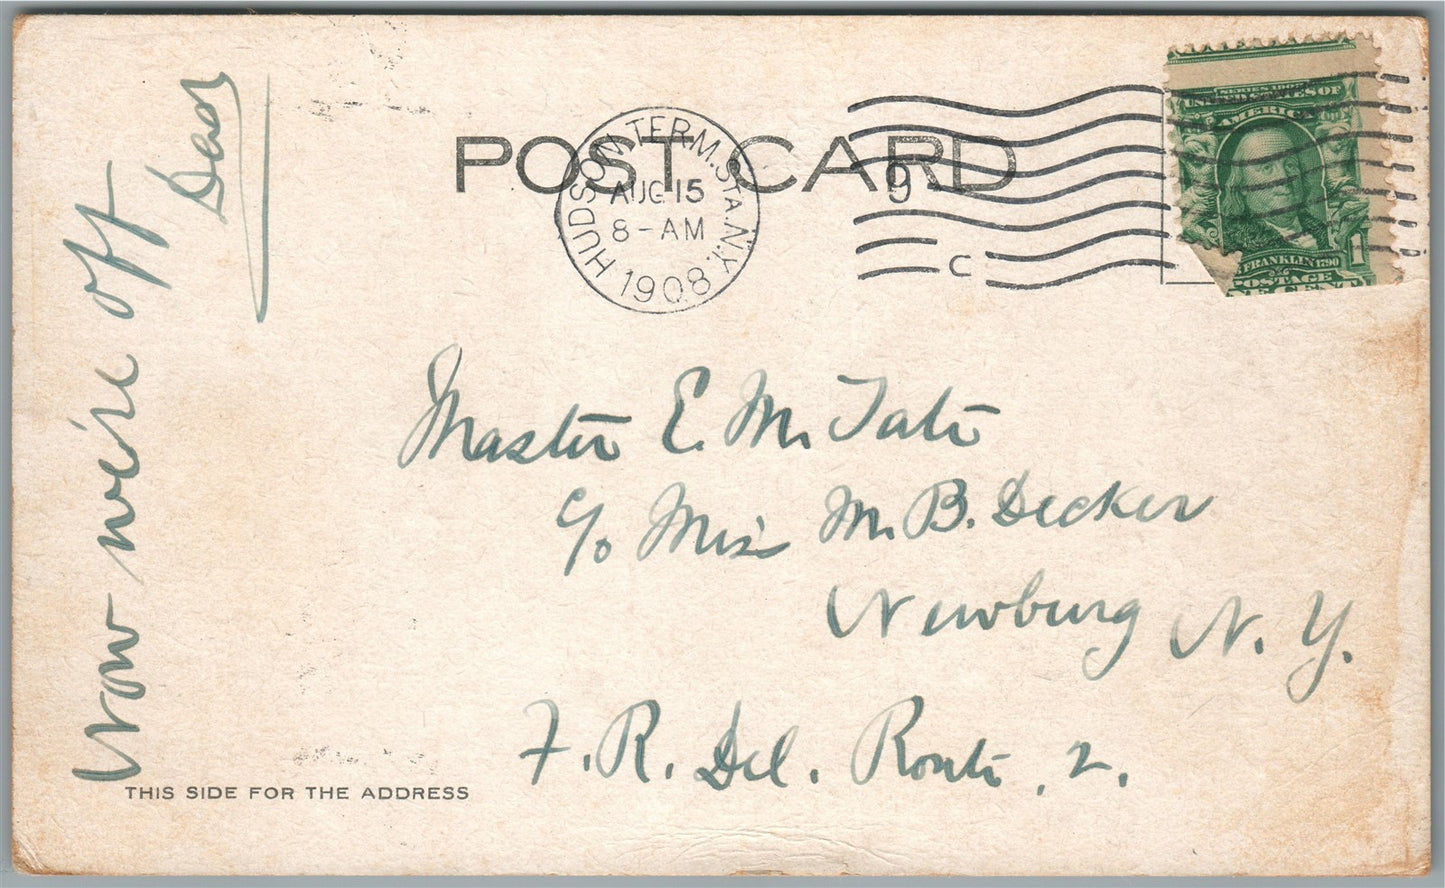 POST CARD
HUDSON TERM. STA. N.Y.
AUG 15
8-AM
1908
9
C
SERIES 1902
UNITED STATES OF
AMERICA
FRANKLIN 1790
1
POSTAGE
ONE CENT
Now we're off
Dad
Master E. M. Tate
c/o Miss M. B. Decker
Newburg N. Y.
F. R. Del. Route, 2.
THIS SIDE FOR THE ADDRESS